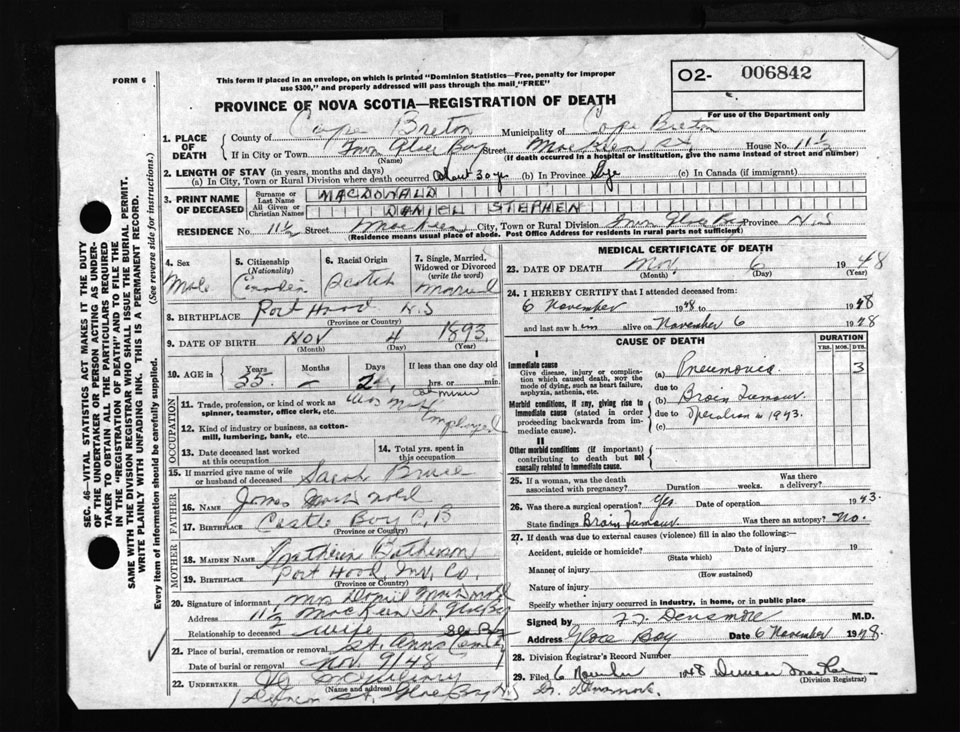 FORM 6
This form if placed in an envelope, on which is printed "Dominion Statistics—Free, penalty for improper
use $300," and properly addressed will pass through the mail "FREE"
O2- 006842
For use of the Department only
PROVINCE OF NOVA SCOTIA—REGISTRATION OF DEATH
1. PLACE OF DEATH
County of Cape Breton Municipality of Cape Breton
If in City or Town Town Glace Bay Street MacKeen St. House No. 11 1/2
(Name) (If death occurred in a hospital or institution, give the name instead of street and number)
2. LENGTH OF STAY (in years, months and days)
(a) In City, Town or Rural Division where death occurred. about 30 yr (b) In Province Life (c) In Canada (if immigrant)
3. PRINT NAME OF DECEASED
Surname or Last Name MACDONALD
All Given or Christian Names DANIEL STEPHEN
RESIDENCE No. 11 1/2 Street MacKeen City, Town or Rural Division Town Glace Bay Province N.S
(Residence means usual place of abode. Post Office Address for residents in rural parts not sufficient)
4. Sex
Male
5. Citizenship
(Nationality)
6. Racial Origin
Scotch
7. Single, Married, Widowed or Divorced
(write the word)
Married
8. BIRTHPLACE Port Hood N.S
(Province or Country)
9. DATE OF BIRTH Nov 4 1893
(Month) (Day) (Year)
10. AGE in Years Months Days If less than one day
55 - 2 hrs. or min.
OCCUPATION
11. Trade, profession, or kind of work as
spinner, teamster, office clerk, etc.
12. Kind of industry or business, as cotton-
mill, lumbering, bank, etc.
13. Date deceased last worked
at this occupation
14. Total yrs. spent in
this occupation
15. If married give name of wife
or husband of deceased Sarah
FATHER
16. Name James MacDonald
17. Birthplace Castle Bay C.B
(Province or Country)
MOTHER
18. MAIDEN NAME
19. BIRTHPLACE Port Hood, Inv. Co.
(Province or Country)
20. Signature of informant Mrs Daniel MacDonald
Address 11 1/2 MacKeen St.
Relationship to deceased wife Glace Bay
21. Place of burial, cremation or removal St. Anns
Date of burial or removal Nov 9/48
22. UNDERTAKER
(Name and address)
Glace Bay N.S
MEDICAL CERTIFICATE OF DEATH
23. DATE OF DEATH Nov. 6 1948
(Month) (Day) (Year)
24. I HEREBY CERTIFY that I attended deceased from:
6 November 1948 to 1948
and last saw him alive on November 6 1948
CAUSE OF DEATH DURATION
YRS. MOS. DYS.
I
Immediate cause
Give disease, injury or complica-
tion which caused death, not the
mode of dying, such as heart failure,
asphyxia, asthenia, etc.
(a) Pneumonia 3
due to
Morbid conditions, if any, giving rise to
immediate cause (stated in order
proceeding backwards from im-
mediate cause).
(b) Brain Tumour
due to Operation in 1943.
(c)
II
Other morbid conditions (if important)
contributing to death but not
causally related to immediate cause.
25. If a woman, was the death
associated with pregnancy? Duration weeks. Was there
a delivery?
26. Was there a surgical operation? Yes Date of operation 1943.
State findings Brain Tumour Was there an autopsy? No.
27. If death was due to external causes (violence) fill in also the following:—
Accident, suicide or homicide? Date of injury 19
(State which)
Manner of injury
(How sustained)
Nature of injury
Specify whether injury occurred in industry, in home, or in public place
Signed by Densmore M.D.
Address Glace Bay Date 6 November 1948.
28. Division Registrar's Record Number
29. Filed 6 November 1948 Duncan
(Division Registrar)
SEC. 46—VITAL STATISTICS ACT MAKES IT THE DUTY
OF THE UNDERTAKER OR PERSON ACTING AS UNDER-
TAKER TO OBTAIN ALL THE PARTICULARS REQUIRED
IN THE "REGISTRATION OF DEATH" AND TO FILE THE
SAME WITH THE DIVISION REGISTRAR WHO SHALL ISSUE THE BURIAL PERMIT.
WRITE PLAINLY WITH UNFADING INK. THIS IS A PERMANENT RECORD.
Every item of information should be carefully supplied. (See reverse side for instructions.)